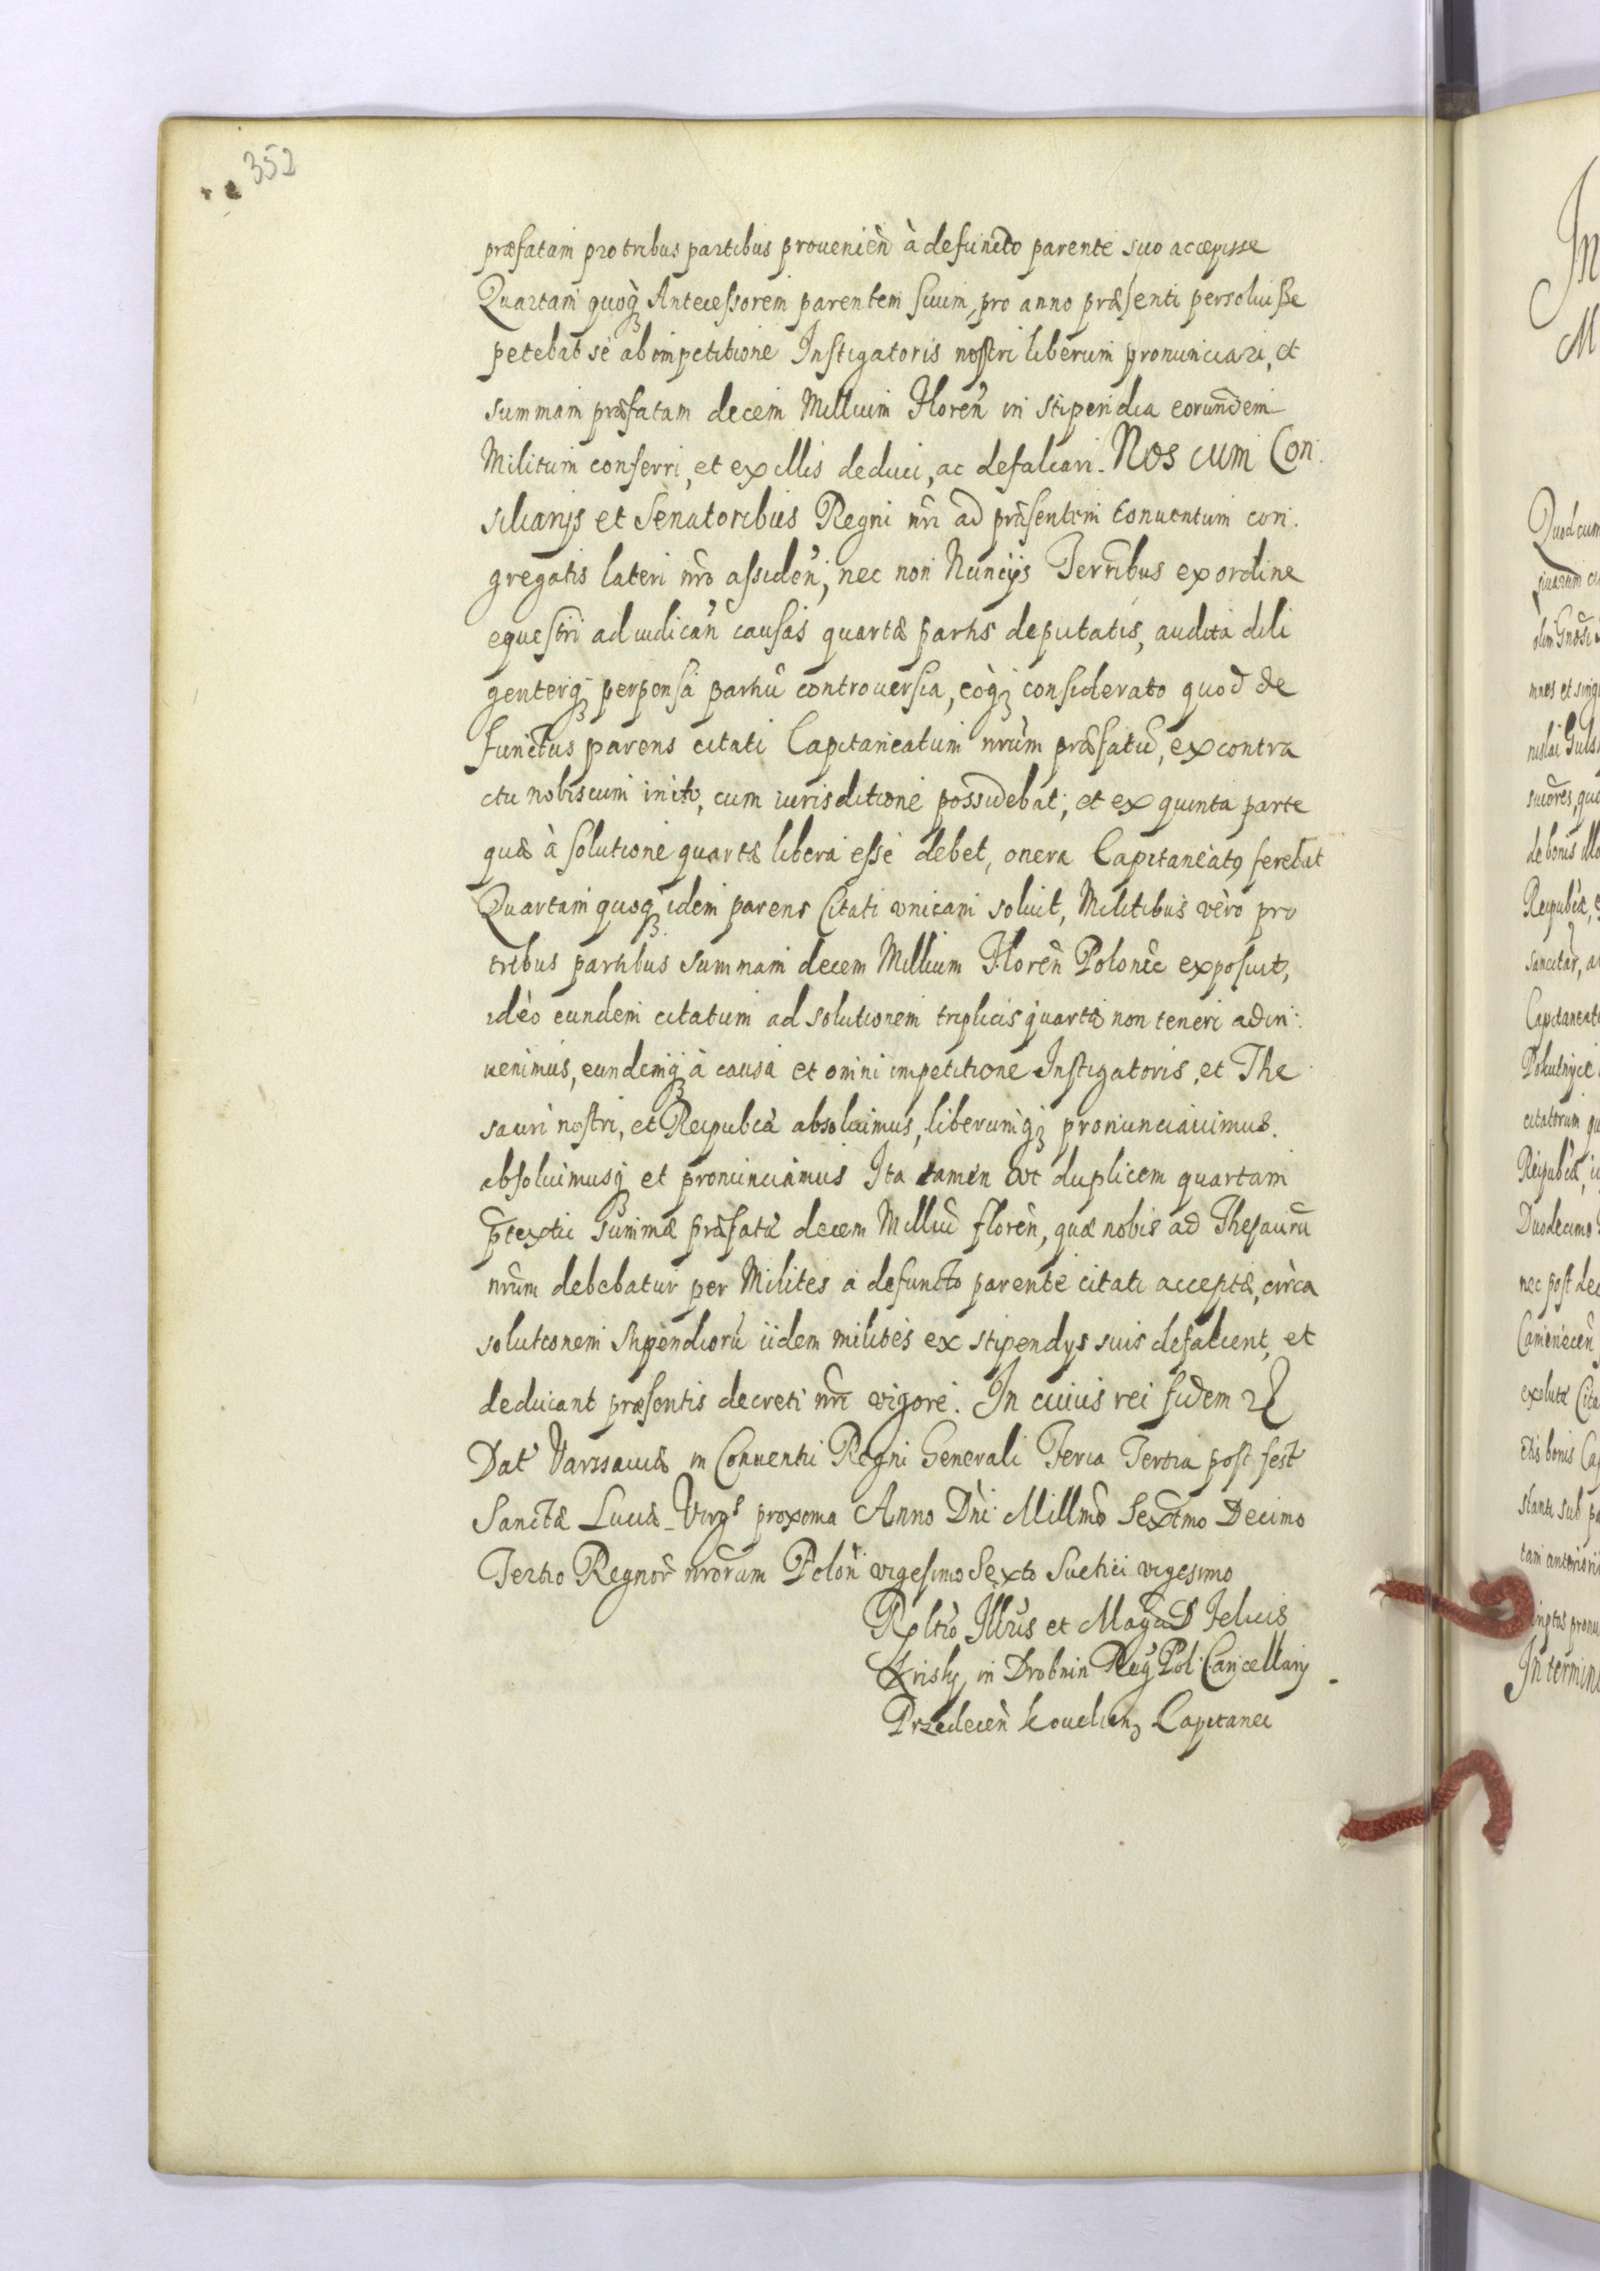 352
præfatam pro tribus partibus prouenien̄ à defuncto parente suo accepisse
Quartam quoq̨ Antecessorem parentem suum, pro anno præsenti persoluisse
petebat se ab impetitione Instigatoris nostri liberum pronunciari, et
summam præfatam decem Millium Floren̄ in stipendia eorundem
Militum conferri, et ex illis deduci, ac defalcari. Nos cum Con
siliarijs et Senatoribus Regni nr̄i ad præsentem conuentum con
gregatis lateri nr̄o assiden̄, nec non Nuncijs Terr̄ibus ex ordine
equestri ad iudican̄ causas quartæ partis deputatis, audita dili
genterq̨ perpensa partiū controuersia, eòq̨ considerato quod de
functus parens citati Capitaneatum nr̄um præfatū, ex contra
ctu nobiscum inito, cum iurisditione possidebat, et ex quinta parte
quæ à solutione quartæ libera esse debet, onera Capitaneatꝰ ferebat
Quartam quoq̨ idem parens Citati vnicam soluit, Militibus vèro pro
tribus partibus summam decem Millium Floren̄ Polonic̄ exposuit,
idèo eundem citatum ad solutionem triplicis quartæ non teneri adin
uenimus, eundemq̨ à causa et omni impetitione Instigatoris, et The
sauri nostri, et Reipubcæ absoluimus, liberumq̨ pronunciauimus.
absoluimusq̨ et pronunciamus Ita tamen vt duplicem quartam
p̄textu summæ præfatæ decem Milliū floren̄, quæ nobis ad Thesaurū
nr̄um debebatur per Milites à defuncto parente citati acceptæ, circa
solutionem stipendiorū iidem milites ex stipendys suis defalcent, et
deducant præsentis decreti nr̄i vigore. In cuius rei fidem
Dat Varssauiæ in Conuentu Regni Generali Feria Tertia post fest
Sanctæ Luciæ Virgs proxima Anno Dn̄i Millmo Sextmo Decimo
Tertio Regnor̄ nr̄orum Polon̄ vigesimo Sexto Suetici vigesimo
Rltio Illrīs et Magci D Felicis
Krisky in Drobnin Reg Pol Cancellarij
Przedecen̄ Capitanei